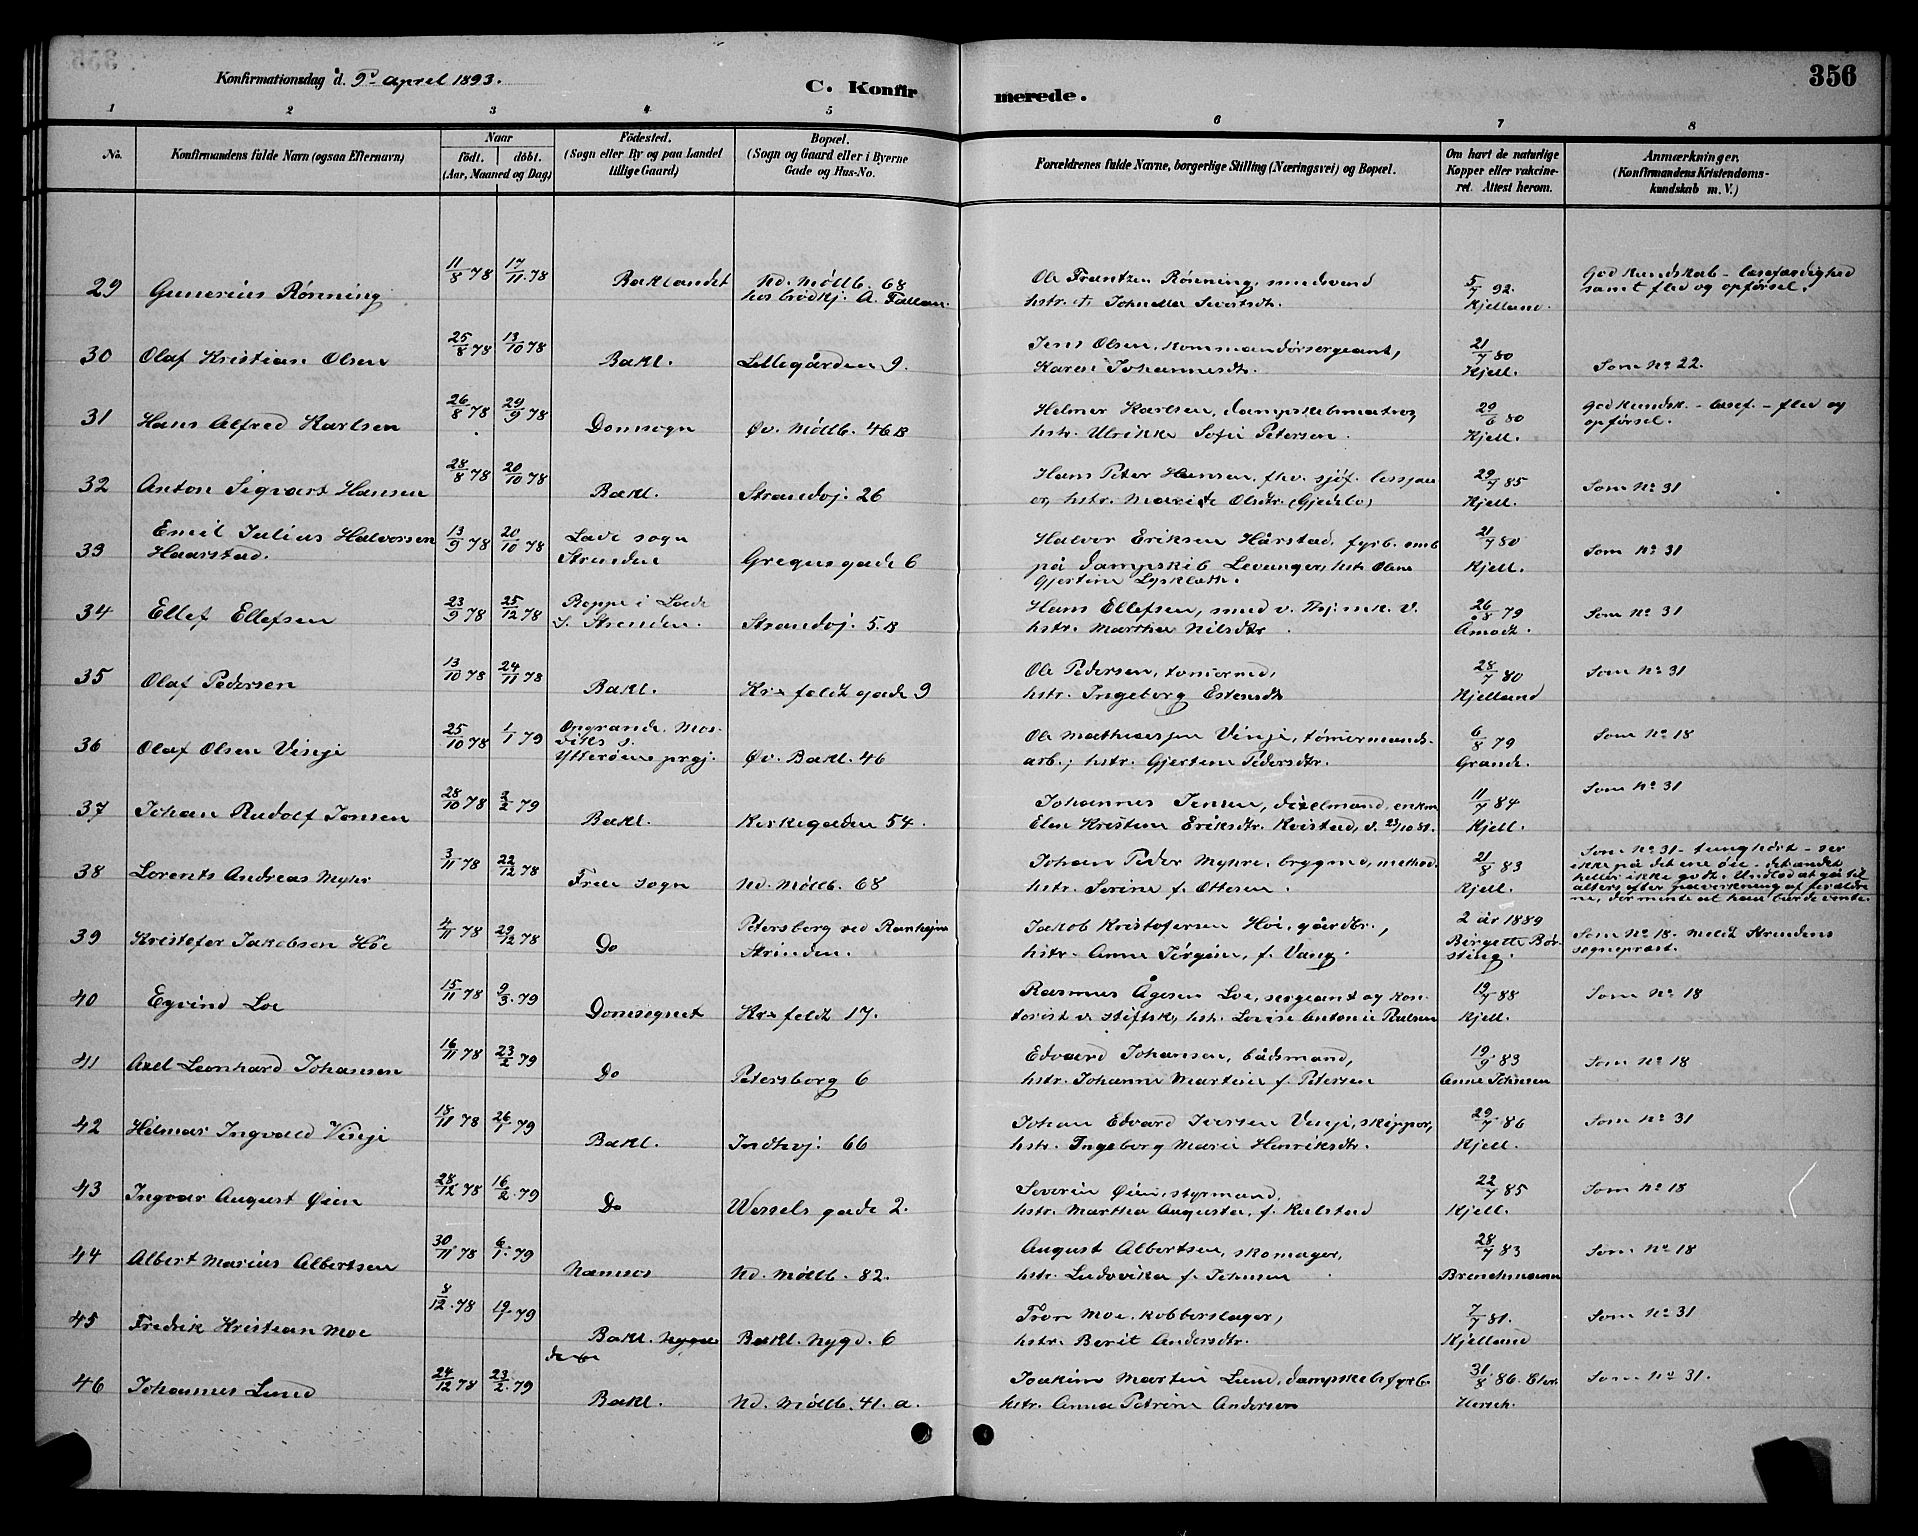 Konfirmationsdag d. 9d April 1893.
C. Konfirmerede.
356
1 2 3 4 5 6 7 8
No.
Konfirmandens fulde Navn (ogsaa Efternavn)
Naar
födt. döbt.
(Aar, Maaned og Dag)
Födested.
(Sogn eller By og paa Landet
tillige Gaard)
Bopæl.
(Sogn og Gaard eller i Byerne
Gade og Hus-No.
Forældrenes fulde Navne, borgerlige Stilling (Næringsvei) og Bopæl.
Om havt de naturlige
Kopper eller vakcineret. Attest herom.
Anmærkninger.
(Konfirmandens Kristendomskundskab m. V.)
29 Gunerius Rönning 11/8 78 17/11 78 Baklandet Nd. Møllb. 68
hos brödkj. A.
Ole Frantzen Rönning, smedsvend
hstr. † Johnetta Sivertsdtr. 5/7 92. Kjelland.
God kundskab - læsefærdighed
samt flid og opførsel.
30 Olaf Kristian Olsen 25/8 78 13/10 78 Bakl. Lillegården 9.
Jens Olsen, kommandørsergeant,
Karen Johannesdtr. 21/7 80 Kjell. Som No 22.
31 Hans Alfred Karlsen 26/8 78 29/9 78 Domsogn Øv. Møllb. 46B
Helmer Karlsen, dampskibsmatros,
hstr. Ulrikke Sofie Petersen. 29/6 80 Kjell.
God kundsk. - læsef. - flid og
opførsel.
32 Anton Sigvart Hansen 28/8 78 20/10 78 Bakl. Strandvj. 26
Hans Peter Hansen, fhv. sjöf.
hstr. Marit Olsdtr. (Gjedebo) 29/7 85 Kjell. Som No 31
33 Emil Julius Halvorsen
Haarstad. 13/9 78 20/10 78 Lade sogn
Strinden Gregusgade 6
Halvor Eriksen Hårstad, fyrb. omb
på dampskib Levanger, hstr. Oline
Gjertine Lysklætt. 21/7 80 Kjell. Som No 31
34 Ellef Ellefsen 23/9 78 25/12 78 Roppe i Lade
S. Strinden. Strandvj. 5.B
Hans Ellefsen, smed v. Thj. mk. V.
hstr. Martha Nilsdtr. 26/8 79 Åmodt. Som No 31
35 Olaf Pedersen 13/10 78 24/11 78 Bakl. Kr. feldtgade 9
Ole Pedersen, tømmermd,
hstr. Ingeborg Estensdtr. 28/7 80 Kjelland Som No 31
36 Olaf Olsen Vinje 25/10 78 1/1 79 Opgrande. Mosviks s.
Ytterøens prgj. Øv. Bakl. 46
Ole Mathiassen Vinje, tömmermandsarb.; hstr. Gjertine Pedersdtr. 6/8 79 Grande. Som No 18
37 Johan Rudolf Jensen 28/10 78 2/2 79 Bakl. Kirkegaden 54.
Johannes Jensen, dixelmand, enkm
Elen Kristine Eriksdtr. Kvistad, d. 23/10 81. 11/7 84 Kjell. Som No 31
38 Lorents Andreas Myhr 3/11 78 22/12 78 Frue sogn Nd. Møllb. 68
Johan Peder Myhre, brygmd, method.
hstr. Serine f. Ottesen. 21/8 83 Kjell.
Som No 31 - tunghørt - ser
ikke på det ene öie - det andet
heller ikke godt. Undlod at gå til
alters efter påvirkning af forældrene, der mente at han burde vente.
39 Kristofer Jakobsen Höe 4/11 78 29/12 78 Do Petersborg ved Ranheim
Strinden.
Jakob Kristofersen Höe, gårdbr.,
hstr. Anne Jörgine, f. Vang. 2 år 1889
Birgette Børsting. Som No 18. Meldt Strindens
sogneprest.
40 Eyvind Loe 15/11 78 9/3 79 Domsognet Kr. feldt 17.
Rasmus Ågesen Loe, sergeant og kontorist v. stiftsk, hstr. Lovise Antonie Paulsen 19/7 88 Kjell. Som No 18
41 Axel Leonhard Johansen 16/11 78 23/2 79 Do Petersborg 6
Edvard Johansen, bådsmand,
hstr. Johanne Martine f. Petersen 19/9 83 Anne Johnsen Som No 18
42 Hilmar Ingvald Vinje 18/11 78 26/1 79 Bakl. Indhvj. 66
Johan Edvard Iversen Vinje, skipper,
hstr. Ingeborg Marie Henriksdtr. 29/7 86 Kjell. Som No 31
43 Ingvar August Øien 28/12 78 16/2 79 Do Wessels gade 2.
Severin Øien, styrmand,
hstr. Martha Augusta, f. Kulstad 22/7 85 Kjell. Som No 18
44 Albert Marius Albertsen 30/11 78 6/1 79 Namsos Nd. Møllb. 82.
August Albertsen, skomager,
hstr. Ludovika f. Johnsen 28/7 83 Brenchmann Som No 18
45 Fredrik Kristian Moe 8/12 78 19/1 79 Bakl. Nygade 6 Bakl. Nygd. 6
Tron Moe, kobberslager,
hstr. Berit Andersdtr. 7/7 81. Kjelland Som No 31
46 Johannes Lund 24/12 78 23/2 79 Bakl. Nd. Møllb. 41. a.
Joakim Martin Lund, dampskibsfyrb.
hstr. Anna Petrine Andersen 31/8 86. Hersch. Som No 31.